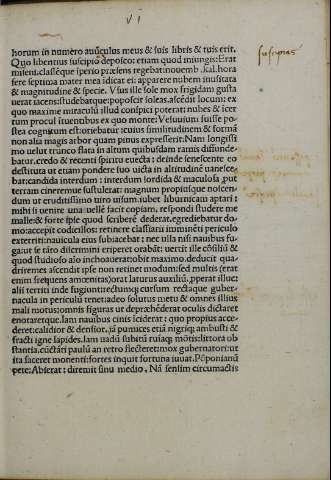 VI
horum in numero auũculus meus & suis libris & tuis erit.
Quo libentius suscipio deposco etiam quod miungis: Erat
miseni. classeq̃ue iperio præsens regebat: nouemb. kal. hora
fere septima mater mea idicat ei: apparere nubem inusitata
& magnitudine & specie. Vsus ille sole mox frigidam gusta
uerat iacens: studebatque: poposcit soleas. ascēdit locum: ex
quo maxime miraculũ illud conspici poterat: nubes & icer
tum procul ituentibus ex quo monte: Vesuuium fuisse po
stea cognitum est: oriebatur: cuius similitudinem & formã
non alia magis arbor quam pinus expresserit. Nam longissi
mo uelut trunco elata in altum quibusdam ramis diffunde
batur. credo & recenti spiritu euecta: deinde senescente eo
destituta ut etiam pondere suo uicta in altitudinẽ uanesce
bat: candida interdum: interdum sordida & maculosa put
terram cineremue sustulerat: magnum propiusque noscen
dum ut eruditissimo uiro uisum. iubet liburnicam aptari:
mihi si uenire una uellẽ facit copiam. respondi studere me
malle: & forte ipse quod scriberẽ dederat. egrediebatur do
mo: accepit codicillos: retincre classiarii imminẽti periculo
exterriti: nauicula eius subiacebat: nec ulla nisi nauibus fu
ga: ut se tãto discrimini eriperet orabãt: uertit ille cõsiliũ &
quod studioso aio inchoauerat: obit maximo. deducit qua
driremes ascendit ipse non retinet modum: sed multis (erat
enim frequens amœnitas) orat laturus auxiliũ. pperat illuc:
alii territi inde fugiunt: rectumq; cursum rectaque guber
nacula in periculũ tenet: adeo solutus metu & omnes illius
mali motus: omnis figuras ut depræhēderat oculis dictaret
enotaretque. Iam nauibus cinis iciderat: quo propius acce
deret: calidior & densior. iã pumices etiã nigriq; ambusti &
fracti igne lapides. Iam uadũ subitũ ruiaq; mõtis: littora ob
stantia. cũctãri paulũ an retro flecteret: mox gubernatori: ut
ita faceret monenti: fortes inquit fortuna iuuat. Põponianũ
pete: Abierat: diremit sinu medio. Nã sensim circumactis
suscipias